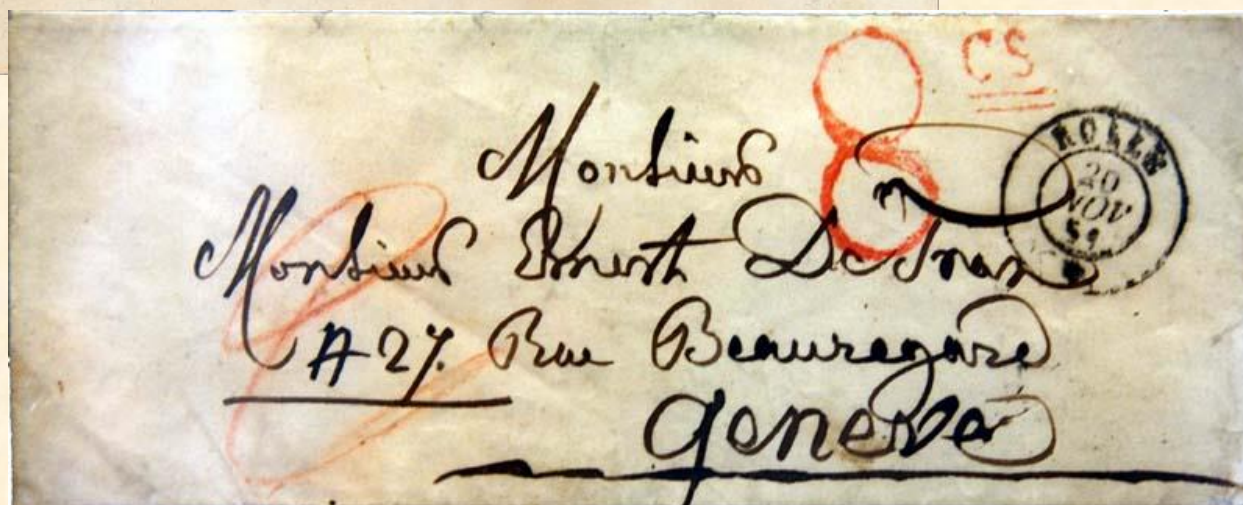 CS
8
ROLLE
20
NOV
Monsieur
Monsieur Ernest De
A 27. Rue Beauregard
Geneve